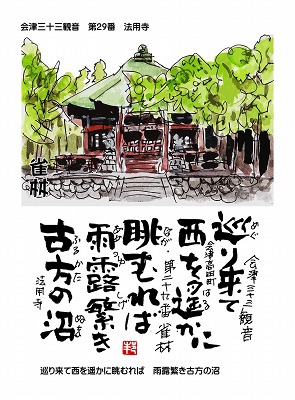 会津三十三観音　第29番　法用寺
雀林
巡り来て
めぐ
会津三十三観音
西を遥かに
はる
会津高田町
眺むれば
なが
第二十九番 雀林
雨露繁き
あめつゆ しげ
古方の沼
ふるかた ぬま
法用寺
巡り来て西を遥かに眺むれば　雨露繁き古方の沼